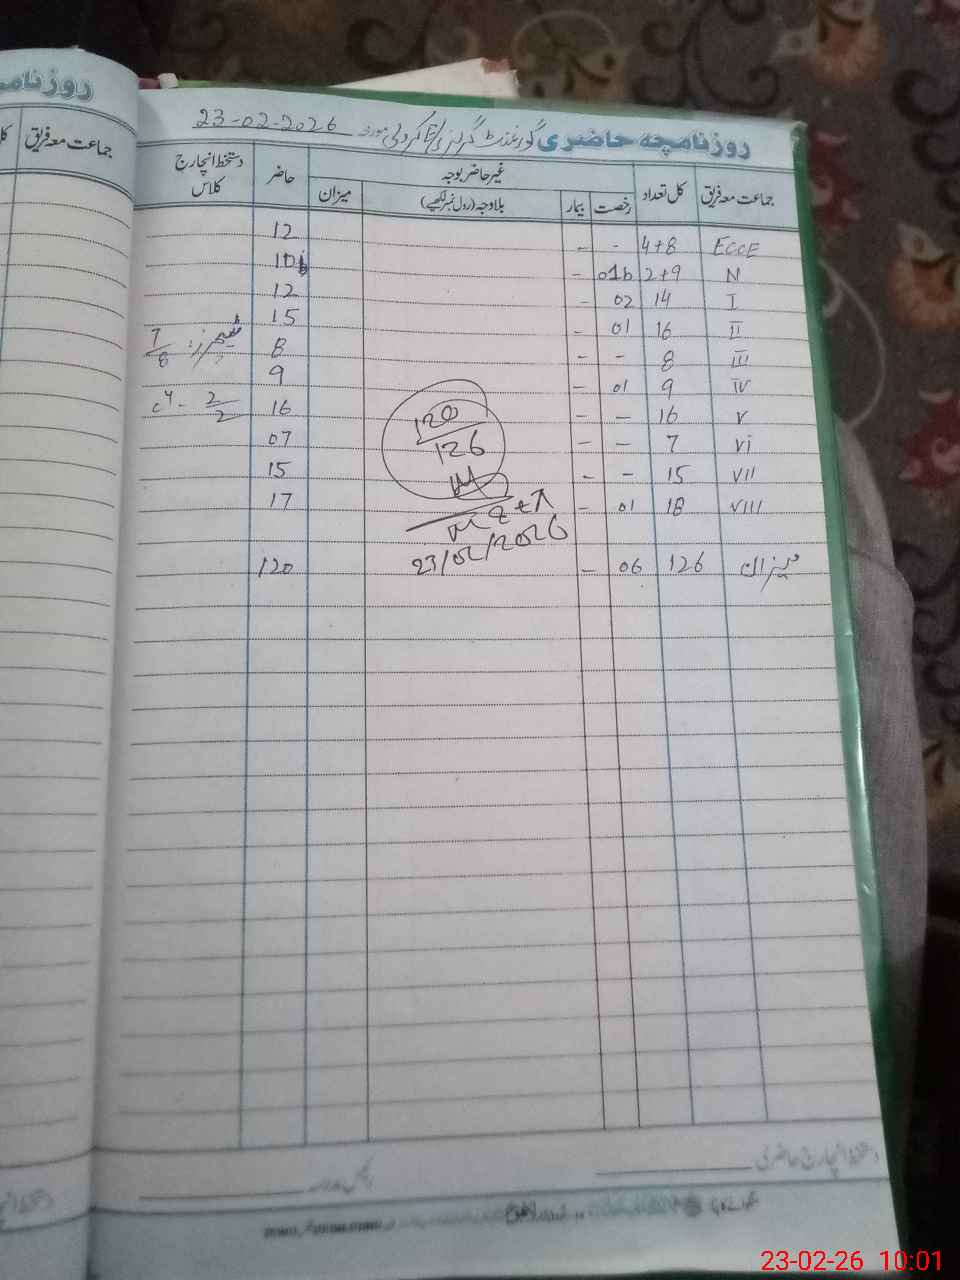 روزنامچہ
جماعت معہ فریق
روزنامچہ حاضری گورنمنٹ گرلز مورخہ 23-02-2026
جماعت معہ فریق کل تعداد غیر حاضر بوجہ حاضر دستخط انچارج کلاس
رخصت بیمار بلاوجہ (رول نمبر لکھیے) میزان
ECCE 4+8 - - 12
N 2+9 01 - 10
I 14 02 - 12
II 16 01 - 15
III 8 - - 8 ٹیچرز: 7/8
IV 9 01 - 9
V 16 - - 16 2/2
vi 7 - - 07
VII 15 - - 15
VIII 18 01 - 17
120/126
23/02/2026
میزان 126 06 - 120
دستخط انچارج حاضری
23-02-26 10:01